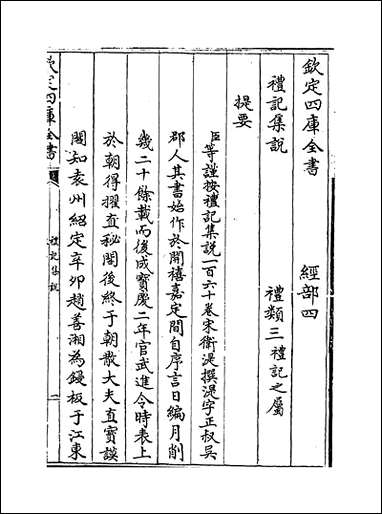 欽定四庫全書
經部四
禮記集說
禮類三禮記之屬
提要
臣等謹按禮記集說一百六十卷宋衛湜撰湜字正叔吳
郡人其書始作於開禧嘉定間自序言日編月削
幾二十餘載而後成寶慶二年官武進令時表上
於朝得擢直秘閣後終于朝散大夫直寶謨
閣知袁州紹定辛卯趙善湘為鋟板于江東
欽定四庫全書
禮記集說
一